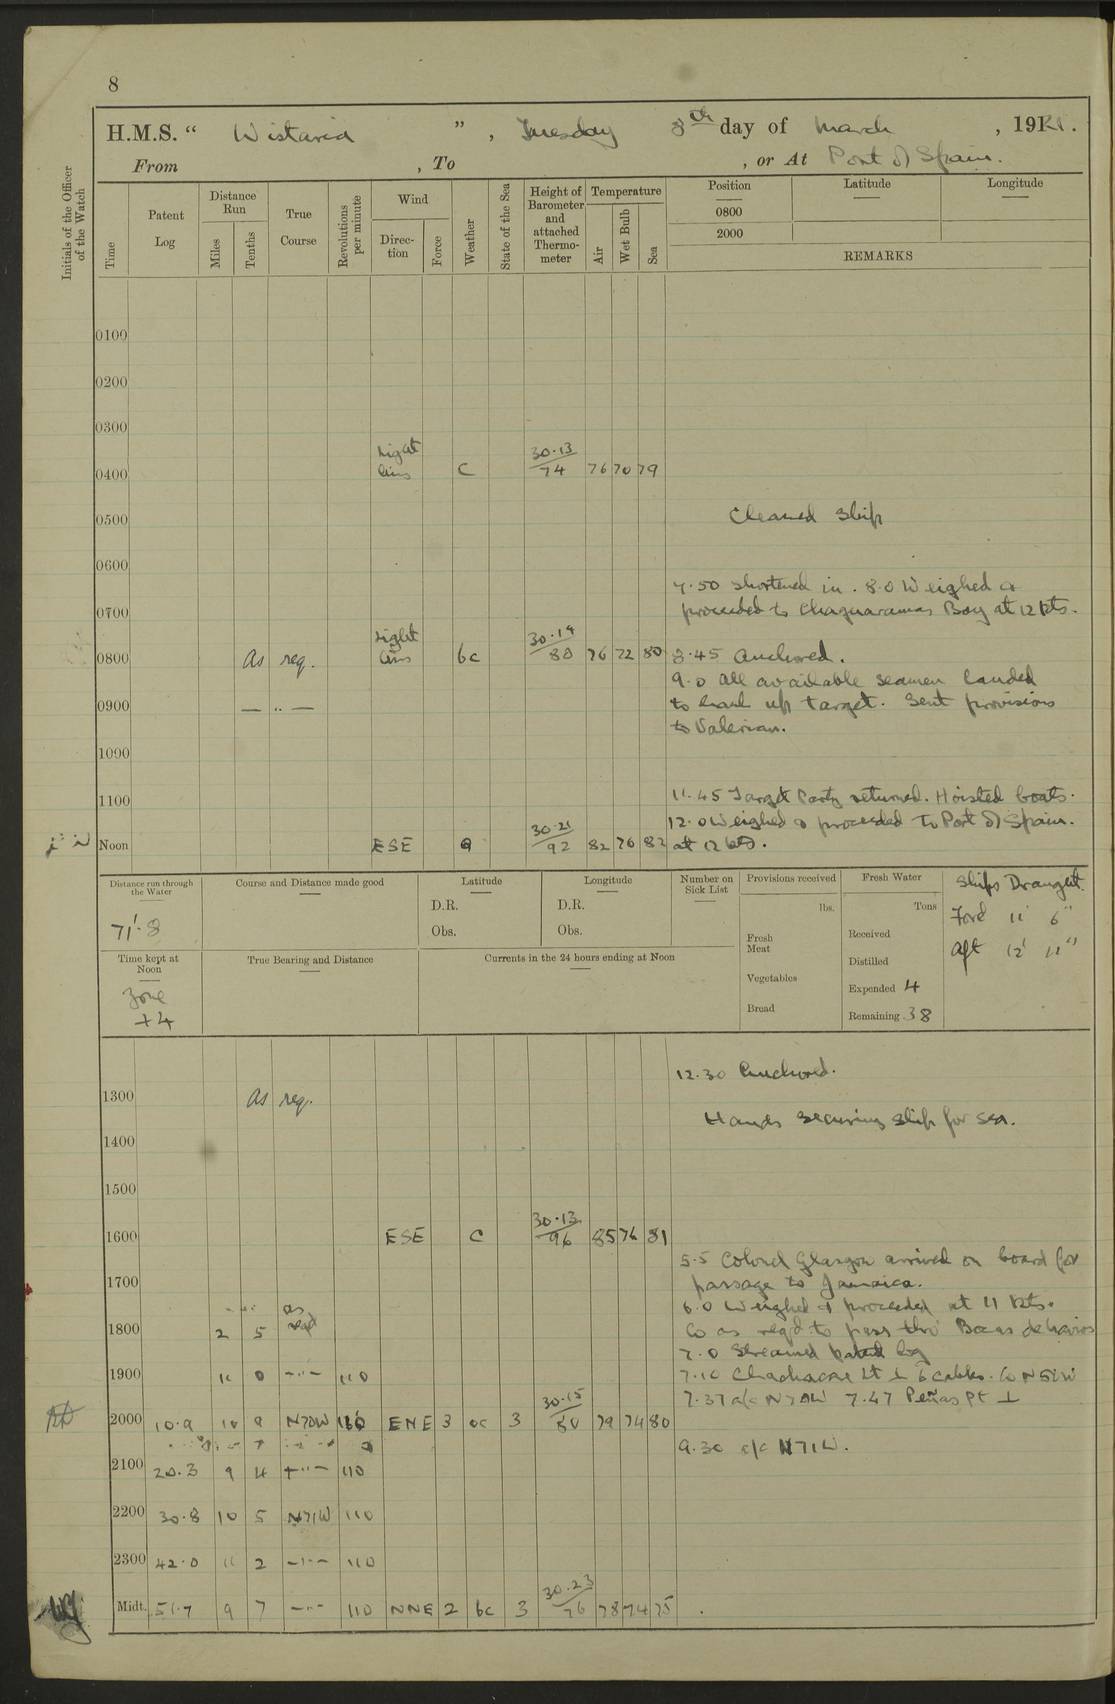 8
H.M.S. " Wistaria ", Tuesday 8th day of March, 1921.
From , To , or At Port of Spain.
Initials of the Officer of the Watch
Time
Patent Log
Distance Run
Miles
Tenths
True Course
Revolutions per minute
Wind
Direction
Force
Weather
State of the Sea
Height of Barometer and attached Thermometer
Temperature
Air
Wet Bulb
Sea
Position
Latitude
Longitude
0800
2000
REMARKS
0100
0200
0300
0400 Light airs C 30.13/74 76 70 79
0500 Cleaned Ship
0600
7.50 Shortened in. 8.0 Weighed &
0700 proceeded to Chaguaramas Bay at 12 kts.
0800 As req. Light airs bc 30.19/80 76 72 80 8.45 Anchored.
9.0 All available seamen landed
0900 — ,, — to haul up target. Sent provisions
to Valerian.
1090
1100 11.45 Target Party returned. Hoisted boats.
12.0 Weighed & proceeded to Port of Spain.
Noon ESE 30.21/92 82 76 82 at 12 kts.
Distance run through the Water
71'.8
Course and Distance made good
Latitude
D.R.
Obs.
Longitude
D.R.
Obs.
Number on Sick List
Provisions received
lbs.
Fresh Meat
Vegetables
Bread
Fresh Water
Tons
Received
Distilled
Expended 4
Remaining 38
Ships Draught.
Ford 11' 6"
Aft 12' 11"
Time kept at Noon
Zone +4
True Bearing and Distance
Currents in the 24 hours ending at Noon
12.30 Anchored.
1300 As req.
Hands securing ship for sea.
1400
1500
1600 ESE C 30.13/96 85 76 81
5.5 Colonel Glasgow arrived on board for
1700 passage to Jamaica.
6.0 Weighed & proceeded at 11 kts.
1800 2 5 as req Co as req'd to pass thro' Bocas de
7.0 Streamed patent log
1900 11 0 — ,, — 110 7.10 Chachacare Lt ⊥ 6 cables. Co N51W
7.37 a/c N70W 7.47 Peñas Pt ⊥
2000 10.9 10 9 N70W ENE 3 bc 3 30.15/80 79 74 80
9.30 a/c N71W.
2100 20.3 9 4 — ,, — 110
2200 30.8 10 5 N71W 110
2300 42.0 11 2 — ,, — 110
Midt. 51.7 9 7 — ,, — 110 NNE 2 bc 3 30.23/76 78 74 75